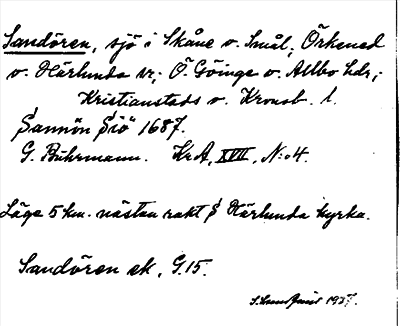 Sandören, sjö i Skåne o. Smål; Örkened
o. Härlunda sr; Ö. Göinge o. Allbo hdr;
Kristianstads o. Kronob. l.
Sannön Siö" 1687.
G. Buhrmann. KrA, XVII, N:o 4.
Läge 5 km. nästan rakt S Härlunda kyrka.
Sandören ek, G.15.
1937.